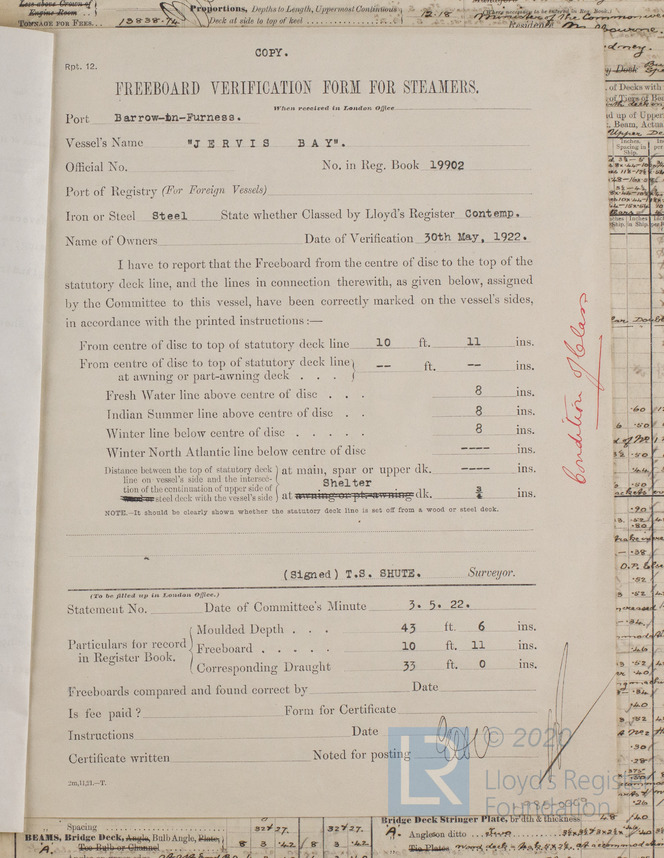 Less above Crown of
Engine Room
TONNAGE FOR FEES... 13838.74
Proportions, Depths to Length, Uppermost Continuous
Deck at side to top of keel 12.18
Minister of the Commonwe
COPY.
Rpt. 12.
FREEBOARD VERIFICATION FORM FOR STEAMERS.
When received in London Office
Port Barrow-in-Furness.
Vessel's Name "JERVIS BAY".
Official No. No. in Reg. Book 19902
Port of Registry (For Foreign Vessels)
Iron or Steel Steel State whether Classed by Lloyd's Register Contemp.
Name of Owners Date of Verification 30th May, 1922.
I have to report that the Freeboard from the centre of disc to the top of the
statutory deck line, and the lines in connection therewith, as given below, assigned
by the Committee to this vessel, have been correctly marked on the vessel's sides,
in accordance with the printed instructions :—
From centre of disc to top of statutory deck line 10 ft. 11 ins.
From centre of disc to top of statutory deck line
at awning or part-awning deck . . . -- ft. -- ins.
Fresh Water line above centre of disc . . . 8 ins.
Indian Summer line above centre of disc . . 8 ins.
Winter line below centre of disc . . . . . 8 ins.
Winter North Atlantic line below centre of disc ---- ins.
Distance between the top of statutory deck
line on vessel's side and the intersec-
tion of the continuation of upper side of
wood or steel deck with the vessel's side
at main, spar or upper dk. ---- ins.
Shelter
at awning or pt.-awning dk. 3/4 ins.
NOTE.—It should be clearly shown whether the statutory deck line is set off from a wood or steel deck.
Condition of Class
(Signed) T.S. SHUTE. Surveyor.
(To be filled up in London Office.)
Statement No. Date of Committee's Minute 3. 5. 22.
Particulars for record
in Register Book.
Moulded Depth . . . 43 ft. 6 ins.
Freeboard . . . . . 10 ft. 11 ins.
Corresponding Draught 33 ft. 0 ins.
Freeboards compared and found correct by Date
Is fee paid ? Form for Certificate
Instructions Date
Certificate written Noted for posting
2m,11,21.—T.
LR © 2020
Lloyd's Register
Foundation
Spacing 32 & 27. 32 & 27.
BEAMS, Bridge Deck, Angle, Bulb Angle, Plate,
Tee Bulb or Channel 8 3 .42 8 3 .42
Bridge Deck Stringer Plate, br'dth & thickness 48 .40
Angle on ditto
Tie Plates